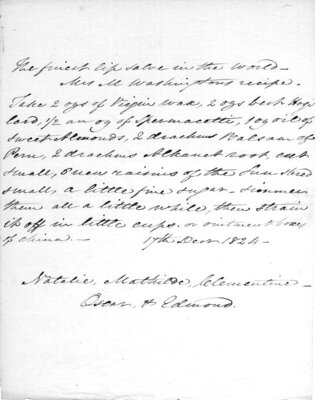 The finest lip salve in the world—
Mrs M Washingtons recipe.
Take 2 ozs of Virgin wax, 2 ozs best Hogs
lard, 1/2 an oz of Spermacette, 1 oz oil of
Sweet Almonds, 2 drachms Balsam of
Peru, 2 drachms Alkanet root, cut
small, 6 new raisins of the Sun shred
small, a little fine sugar— simmer
them all a little while, then strain
it off in little cups. or ointment boxes
of china.— 17th Decr 1824—
Natalie, Mathilde, Clementine—
Oscar, & Edmond.